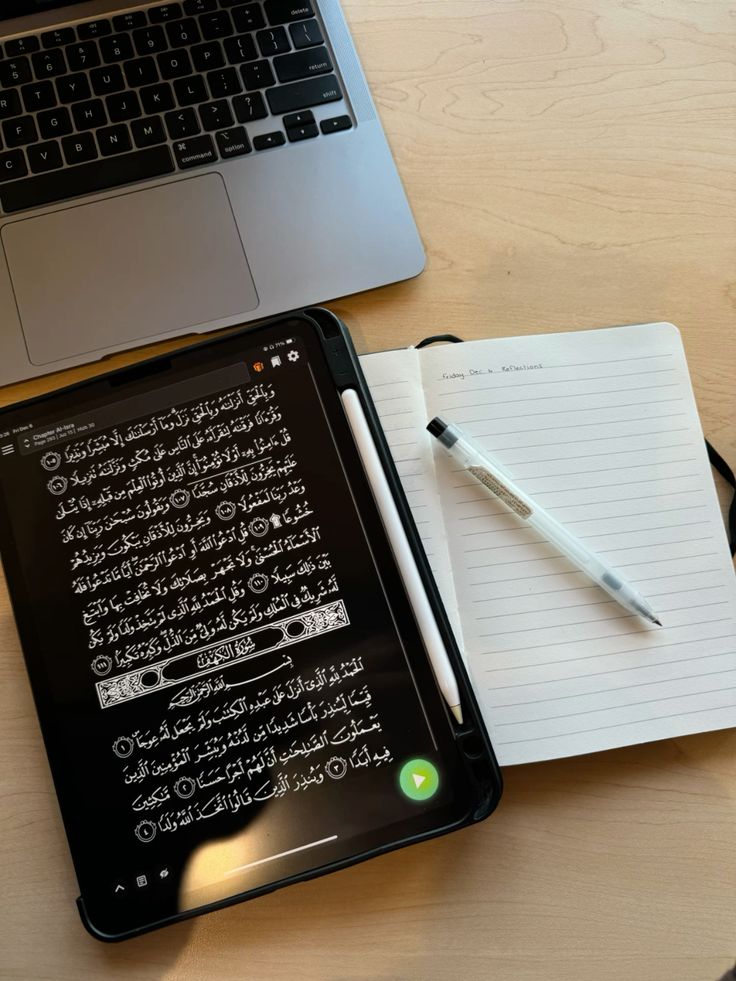 delete
5 6 7 8 9 0 { [ } ]
R T Y U I O P return
F G H J K L shift
C V B N M < , > . ? /
command option
Fri Dec 6 71%
Chapter Al-Isra
Page 293 | Juz 15 | Hizb 30
وَبِٱلْحَقِّ أَنزَلْنَٰهُ وَبِٱلْحَقِّ نَزَلَ ۗ وَمَآ أَرْسَلْنَٰكَ إِلَّا مُبَشِّرًا وَنَذِيرًا ١٠٥
وَقُرْءَانًا فَرَقْنَٰهُ لِتَقْرَأَهُۥ عَلَى ٱلنَّاسِ عَلَىٰ مُكْثٍ وَنَزَّلْنَٰهُ تَنزِيلًا ١٠٦
قُلْ ءَامِنُوا۟ بِهِۦٓ أَوْ لَا تُؤْمِنُوٓا۟ ۚ إِنَّ ٱلَّذِينَ أُوتُوا۟ ٱلْعِلْمَ مِن قَبْلِهِۦٓ إِذَا يُتْلَىٰ
عَلَيْهِمْ يَخِرُّونَ لِلْأَذْقَانِ سُجَّدًا ١٠٧ وَيَقُولُونَ سُبْحَٰنَ رَبِّنَآ إِن كَانَ
وَعْدُ رَبِّنَا لَمَفْعُولًا ١٠٨ وَيَخِرُّونَ لِلْأَذْقَانِ يَبْكُونَ وَيَزِيدُهُمْ
خُشُوعًا ۩ ١٠٩ قُلِ ٱدْعُوا۟ ٱللَّهَ أَوِ ٱدْعُوا۟ ٱلرَّحْمَٰنَ ۖ أَيًّا مَّا تَدْعُوا۟ فَلَهُ
ٱلْأَسْمَآءُ ٱلْحُسْنَىٰ ۚ وَلَا تَجْهَرْ بِصَلَاتِكَ وَلَا تُخَافِتْ بِهَا وَٱبْتَغِ
بَيْنَ ذَٰلِكَ سَبِيلًا ١١٠ وَقُلِ ٱلْحَمْدُ لِلَّهِ ٱلَّذِى لَمْ يَتَّخِذْ وَلَدًا وَلَمْ يَكُن
لَّهُۥ شَرِيكٌ فِى ٱلْمُلْكِ وَلَمْ يَكُن لَّهُۥ وَلِىٌّ مِّنَ ٱلذُّلِّ ۖ وَكَبِّرْهُ تَكْبِيرًۢا ١١١
سُورَةُ ٱلْكَهْفِ
بِسْمِ ٱللَّهِ ٱلرَّحْمَٰنِ ٱلرَّحِيمِ
ٱلْحَمْدُ لِلَّهِ ٱلَّذِىٓ أَنزَلَ عَلَىٰ عَبْدِهِ ٱلْكِتَٰبَ وَلَمْ يَجْعَل لَّهُۥ عِوَجَا ۜ ١
قَيِّمًا لِّيُنذِرَ بَأْسًا شَدِيدًا مِّن لَّدُنْهُ وَيُبَشِّرَ ٱلْمُؤْمِنِينَ ٱلَّذِينَ
يَعْمَلُونَ ٱلصَّٰلِحَٰتِ أَنَّ لَهُمْ أَجْرًا حَسَنًا ٢ مَّٰكِثِينَ
فِيهِ أَبَدًا ٣ وَيُنذِرَ ٱلَّذِينَ قَالُوا۟ ٱتَّخَذَ ٱللَّهُ وَلَدًا ٤
Friday Dec 6 Reflections